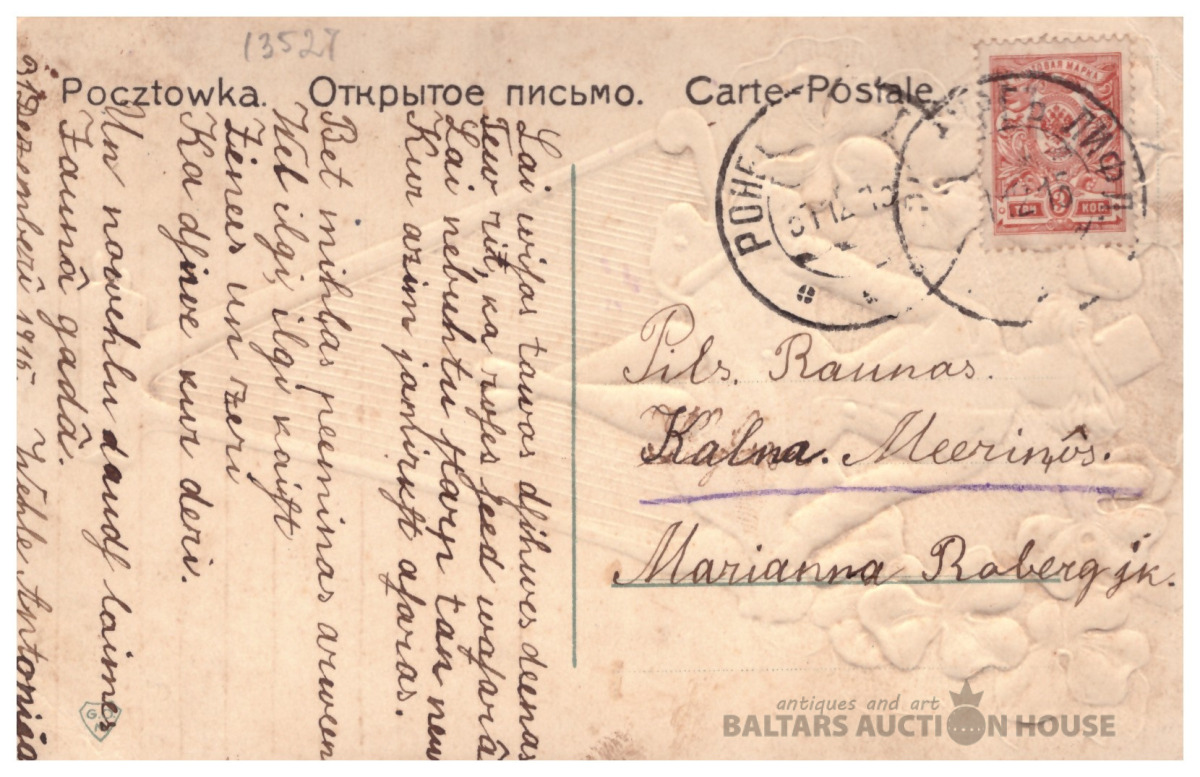 13527
Pocztowka. Открытое письмо. Carte-Postale
Lai wiſas tawas dſihwes deenas
Tew rit, ka roſes ſeed waſarâ
Lai nebuhtu ſtarp tan new
Kur azim jamirkſt aſaras.
Bet mihlas peeminas arween
Wel ilgi, ilgi kaiſt
Zienes un zeri
Ka dſiwe kur deri.
Un nowehlu daudſ laimes
Jaunâ gadâ.
31 Dezemberî 1915. Wehle Antonija
РОНЕ
31 12 15
ЛИФЛ
15
ТРИ 3 КОП.
Pils. Raunas.
Kalna. Meerinôs.
Marianna Roberg jk.
antiques and art
BALTARS AUCTION HOUSE